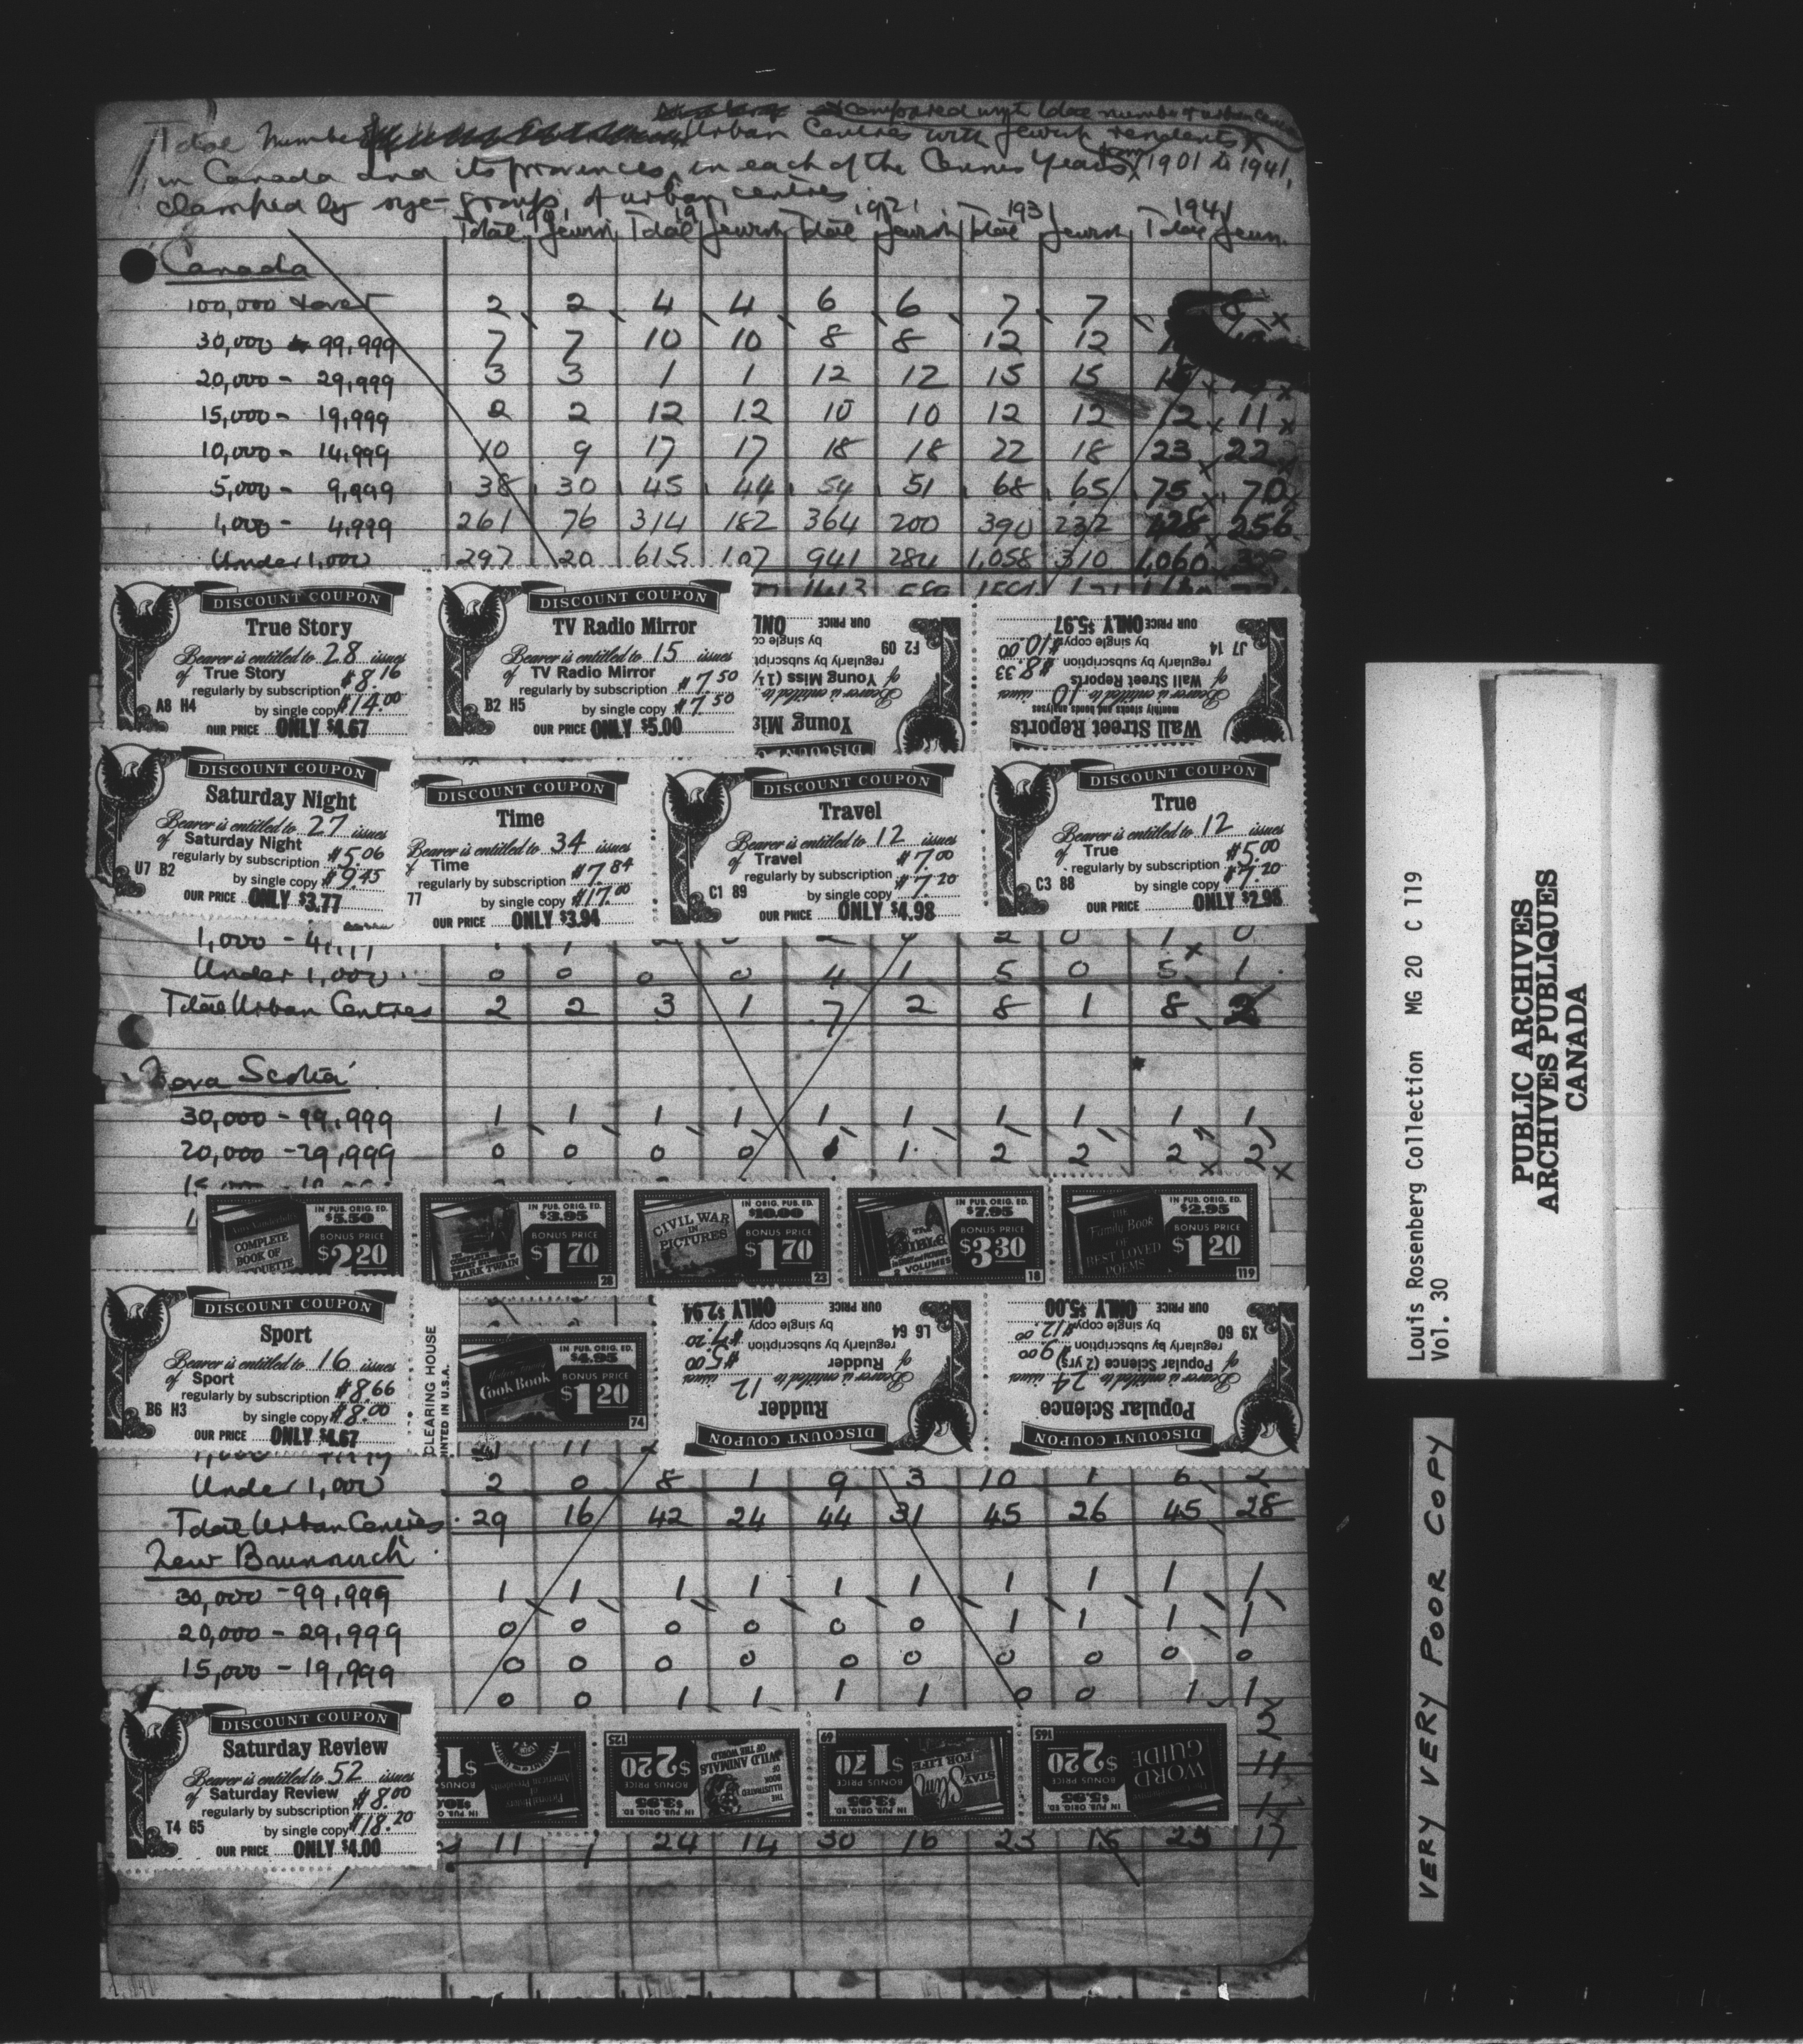 compared with total number urban centres
Total Number Urban Centres with Jewish residents
in Canada and its provinces, in each of the Census Years from 1901 to 1941,
classified by size-groups of urban centres
1901 1911 1921 1931 1941
Total Jewish Total Jewish Total Jewish Total Jewish Total Jewish
Canada
100,000 & over 2 2 4 4 6 6 7 7 8
30,000 - 99,999 7 7 10 10 8 8 12 12
20,000 - 29,999 3 3 1 1 12 12 15 15
15,000 - 19,999 2 2 12 12 10 10 12 12 12 11
10,000 - 14,999 10 9 17 17 18 18 22 18 23 22
5,000 - 9,999 38 30 45 44 54 51 68 65 75 70
1,000 - 4,999 261 76 314 182 364 200 390 232 428 256
Under 1,000 297 20 615 107 941 284 1,058 310 1,060
DISCOUNT COUPON
True Story
Bearer is entitled to 28 issues
of True Story
regularly by subscription $8.16
by single copy $14.00
A8 H4
OUR PRICE ONLY $4.67
DISCOUNT COUPON
TV Radio Mirror
Bearer is entitled to 15 issues
of TV Radio Mirror
regularly by subscription $7.50
by single copy $7.50
B2 H5
OUR PRICE ONLY $5.00
DISCOUNT
Young Mis
Bearer is entitled to
of Young Miss (1½
regularly by subscript
by single co
F2 09
OUR PRICE ONL
Wall Street Reports
monthly stocks and bonds analyses
Bearer is entitled to 10 issues
of Wall Street Reports
regularly by subscription $8.33
by single copy $10.00
J7 14
OUR PRICE ONLY $5.97
DISCOUNT COUPON
Saturday Night
Bearer is entitled to 27 issues
of Saturday Night
regularly by subscription $5.06
by single copy $9.45
U7 B2
OUR PRICE ONLY $3.77
DISCOUNT COUPON
Time
Bearer is entitled to 34 issues
of Time
regularly by subscription $7.84
by single copy $17.00
77
OUR PRICE ONLY $3.94
DISCOUNT COUPON
Travel
Bearer is entitled to 12 issues
of Travel
regularly by subscription $7.00
by single copy $7.20
C1 89
OUR PRICE ONLY $4.98
DISCOUNT COUPON
True
Bearer is entitled to 12 issues
of True
regularly by subscription $5.00
by single copy $7.20
C3 88
OUR PRICE ONLY $2.98
1,000 -
Under 1,000 0 0 0 0 4 1 5 0 5 1
Total Urban Centres 2 2 3 1 7 2 8 1 8
Nova Scotia
30,000 - 99,999 1 1 1 1 1 1 1 1 1 1
20,000 - 29,999 0 0 0 0 1 2 2 2 2
Amy Vanderbilt's
COMPLETE
BOOK OF
IN PUB. ORIG. ED.
$5.50
BONUS PRICE
$2.20
THE
COMPLETE
SHORT STORIES OF
MARK TWAIN
IN PUB. ORIG. ED.
$3.95
BONUS PRICE
$1.70
28
CIVIL WAR
IN
PICTURES
IN ORIG. PUB. ED.
$10.00
BONUS PRICE
$1.70
23
2 VOLUMES
IN PUB. ORIG. ED.
$7.95
BONUS PRICE
$3.30
18
THE
Family Book
OF
BEST LOVED
POEMS
IN PUB. ORIG. ED.
$2.95
BONUS PRICE
$1.20
119
DISCOUNT COUPON
Sport
Bearer is entitled to 16 issues
of Sport
regularly by subscription $8.66
by single copy $8.00
B6 H3
OUR PRICE ONLY $4.67
CLEARING HOUSE
INTED IN U.S.A.
Cook Book
IN PUB. ORIG. ED.
$4.95
BONUS PRICE
$1.20
74
DISCOUNT COUPON
Rudder
Bearer is entitled to 12 issues
of Rudder
regularly by subscription $5.00
by single copy $7.20
L6 64
OUR PRICE ONLY $2.94
DISCOUNT COUPON
Popular Science
Bearer is entitled to 24 issues
of Popular Science (2 yrs)
regularly by subscription $9.00
by single copy $12.00
X9 60
OUR PRICE ONLY $5.00
Under 1,000 2 0 8 1 9 3 10 1 6 2
Total Urban Centres 29 16 42 24 44 31 45 26 45 28
New Brunswick
30,000 - 99,999 1 1 1 1 1 1 1 1 1 1
20,000 - 29,999 0 0 0 0 0 0 1 1 1 1
15,000 - 19,999 0 0 0 0 0 0 0 0 0 0
0 0 1 1 1 1 0 0 1 1
DISCOUNT COUPON
Saturday Review
Bearer is entitled to 52 issues
of Saturday Review
regularly by subscription $8.00
by single copy $18.20
T4 65
OUR PRICE ONLY $4.00
American Presidents
BONUS
THE
ILLUSTRATED
BOOK
OF
WILD ANIMALS
OF THE WORLD
IN PUB. ORIG. ED.
$3.95
BONUS PRICE
$2.20
125
STAY
Slim
FOR LIFE
IN PUB. ORIG. ED.
$3.95
BONUS PRICE
$1.70
69
WORD
GUIDE
IN PUB. ORIG. ED.
$5.95
BONUS PRICE
$2.20
165
11 24 14 30 16 23 23 17
Louis Rosenberg Collection MG 20 C 119
Vol. 30
PUBLIC ARCHIVES
ARCHIVES PUBLIQUES
CANADA
VERY VERY POOR COPY